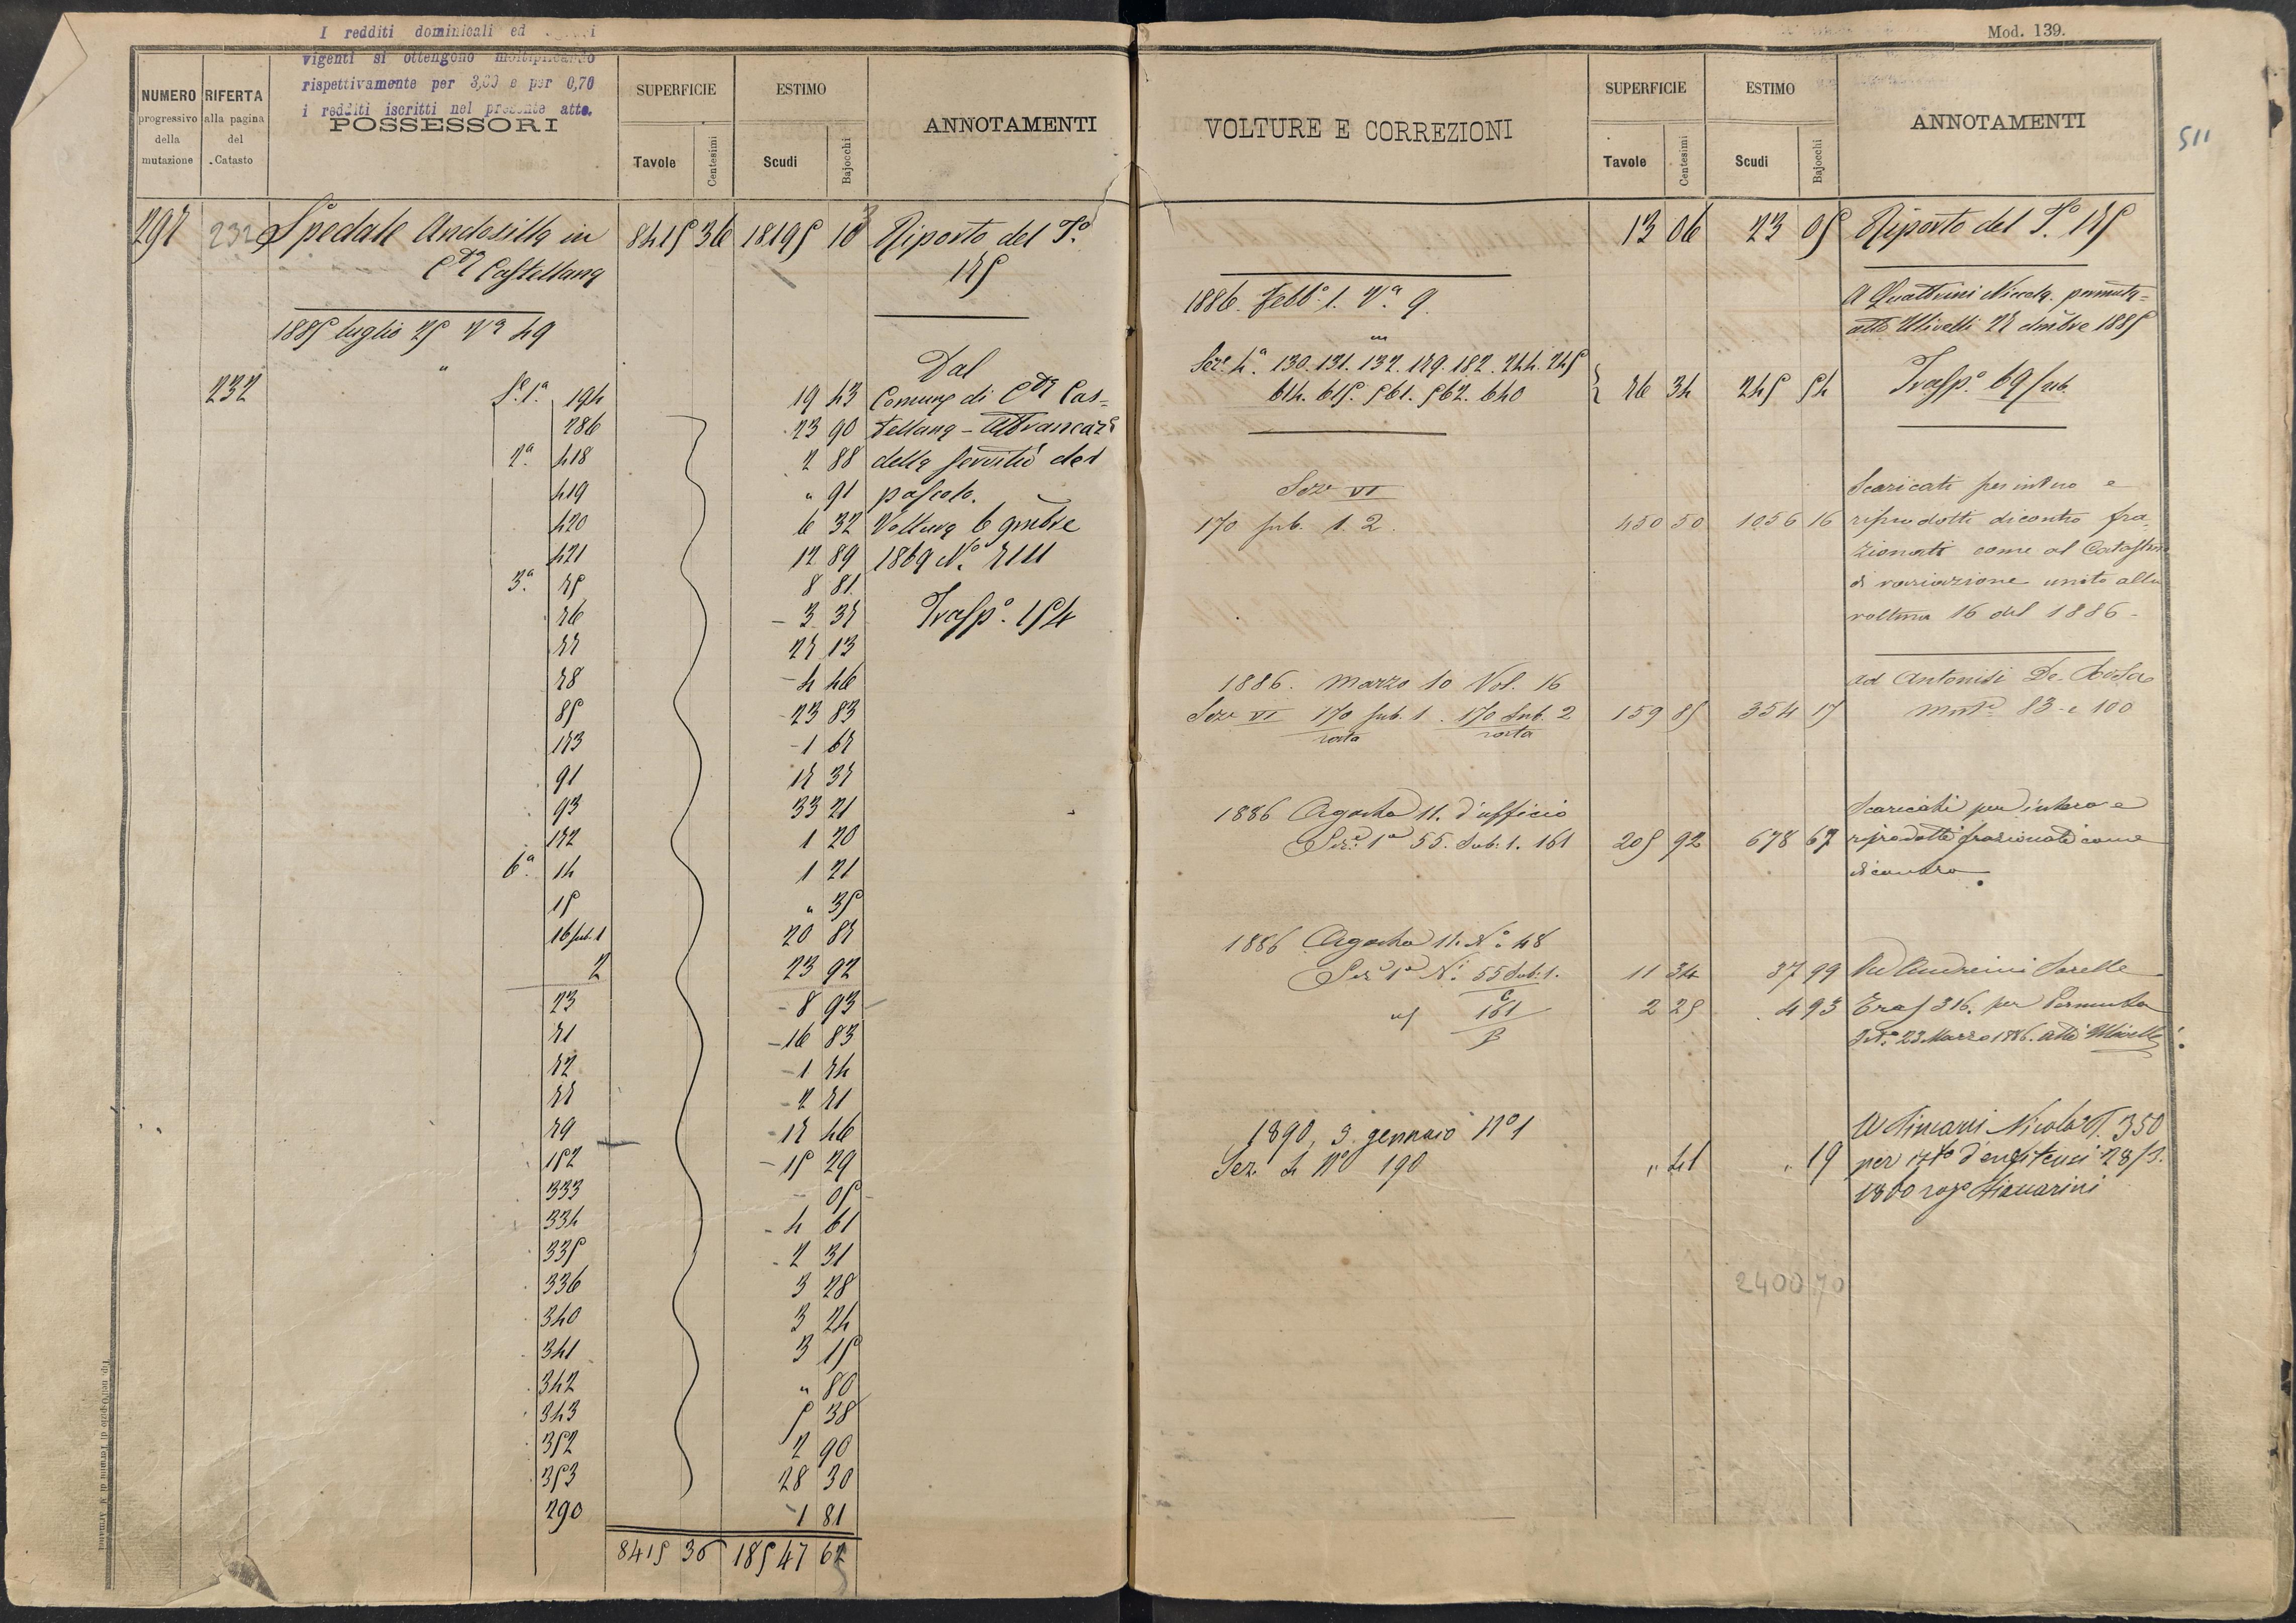 I redditi dominicali ed
vigenti si ottengono moltiplicando
rispettivamente per 3,00 e per 0,70
i redditi iscritti nel presente atto.
NUMERO progressivo della mutazione
RIFERTA alla pagina del Catasto
POSSESSORI
SUPERFICIE
Tavole Centesimi
ESTIMO
Scudi Bajocchi
ANNOTAMENTI
297 232 Spedale Andosilla in 8415 36 18195 10 Riporto del F.o
C.ta Castellana 175
1885 luglio 25 V.a 49
Dal
232 S.e 1.a 194 19 43 Comune di C.ta Cas=
286 23 90 tellana - Affrancaz.e
2.a 418 2 88 della servitù del
419 " 91 pascolo.
420 6 32 Voltura 6 9mbre
421 12 89 1869 N.o
3.a 75 8 81
76 3 37 Trasp.o 154
77 27 13
78 4 46
85 23 83
173 1 67
91 17 37
93 33 21
172 1 20
6.a 14 1 21
15 " 35
16 sub. 1 20 87
2 23 92
23 8 93
71 16 83
72 1 74
77 2 71
79 17 46
152 15 29
333 - 05
334 4 61
335 2 31
336 3 28
340 3 24
341 3 15
342 " 80
343 5 38
352 2 90
353 28 30
290 1 81
8415 36 18547 62
Mod. 139.
511
VOLTURE E CORREZIONI
SUPERFICIE
Tavole Centesimi
ESTIMO
Scudi Bajocchi
ANNOTAMENTI
13 06 23 05 Riporto del F.o 175
1886. Febb.o 1. V.a 9.
A Quattrini Niccola. permuta=
atto Ulivelli 22 dmbre 1885
Sez.e 4.a 130. 131. 132. 179. 182. 244. 245
614. 615. 561. 562. 640 76 34 245 54 Trasp.o 69 sub.
Scaricati per intero e
Sez.e VI
170 sub. 1. 2. 450 50 1056 16 riprodotti dicontro fra
zionati come al Catastino
di variazione unito alla
voltura 16 del 1886 -
1886. Marzo 10 Vol. 16 ad Antonisi De-Rosa
Sez.e VI 170 sub. 1. 170 sub. 2 159 85 354 17 83 e 100
rata rata
1886 Agosto 11. d'ufficio Scaricati per intero e
Sez.e 1.a 55. Sub. 1. 161 205 92 678 67 riprodotti frazionati come
dicontro
1886 Agosto 11. N.o 48
Sez.e 1.a N.i 55 Sub. 1. 11 34 37 99 Ad Andreini Sorelle
C
161 2 25 4 93 Tras 316. per Permuta
B 23 Marzo 1886. atti Ulivelli
1890, 3 gennaio N.o 1 A Nicola T. 350
Sez. 4 N.o 190 " 41 " 19 per d'enfiteusi 28/3.
2400 70